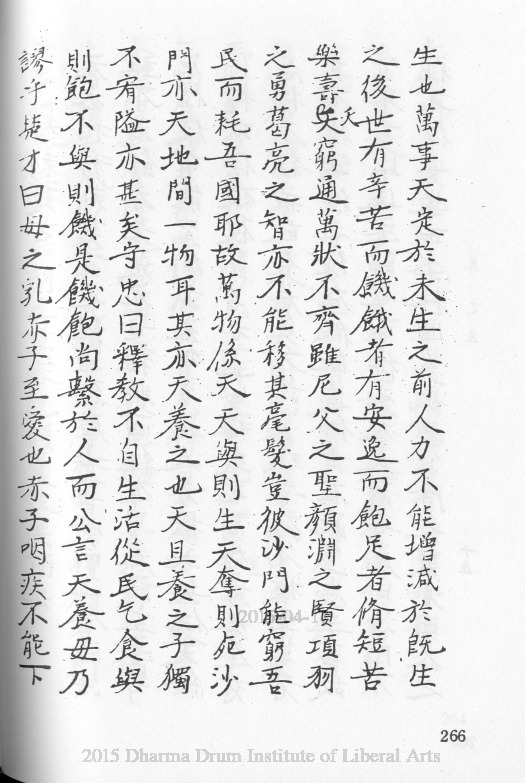 生也萬事天定於未生之前人力不能增減於旣生
之後世有辛苦而饑餓者有安逸而飽足者脩短苦
樂壽夭窮通萬狀不齊雖尼父之聖顔淵之賢項羽
之勇葛亮之智亦不能移其毫髮豈彼沙門能窮吾
民而耗吾國耶故萬物係天天與則生天奪則死沙
門亦天地間一物耳其亦天養之也天且養之子獨
不宥隘亦甚矣守忠曰釋教不自生活從民乞食與
則飽不與則饑是饑飽尚繫於人而公言天養毋乃
謬乎楚才曰母之乳赤子至愛也赤子咽疾不能下
266
2015 Dharma Drum Institute of Liberal Arts